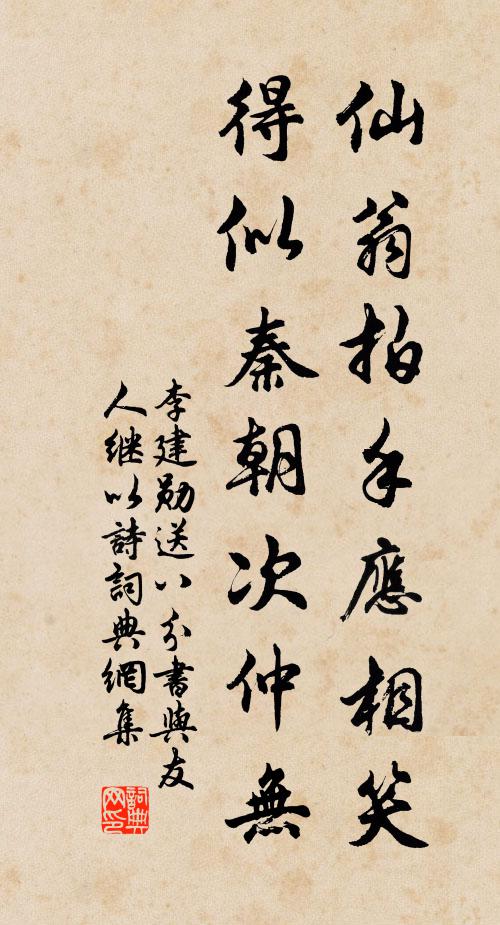 仙翁拍手應相笑
得似秦朝次仲無
李建勋送八分書與友
人继以詩詞典網集
詞典網印